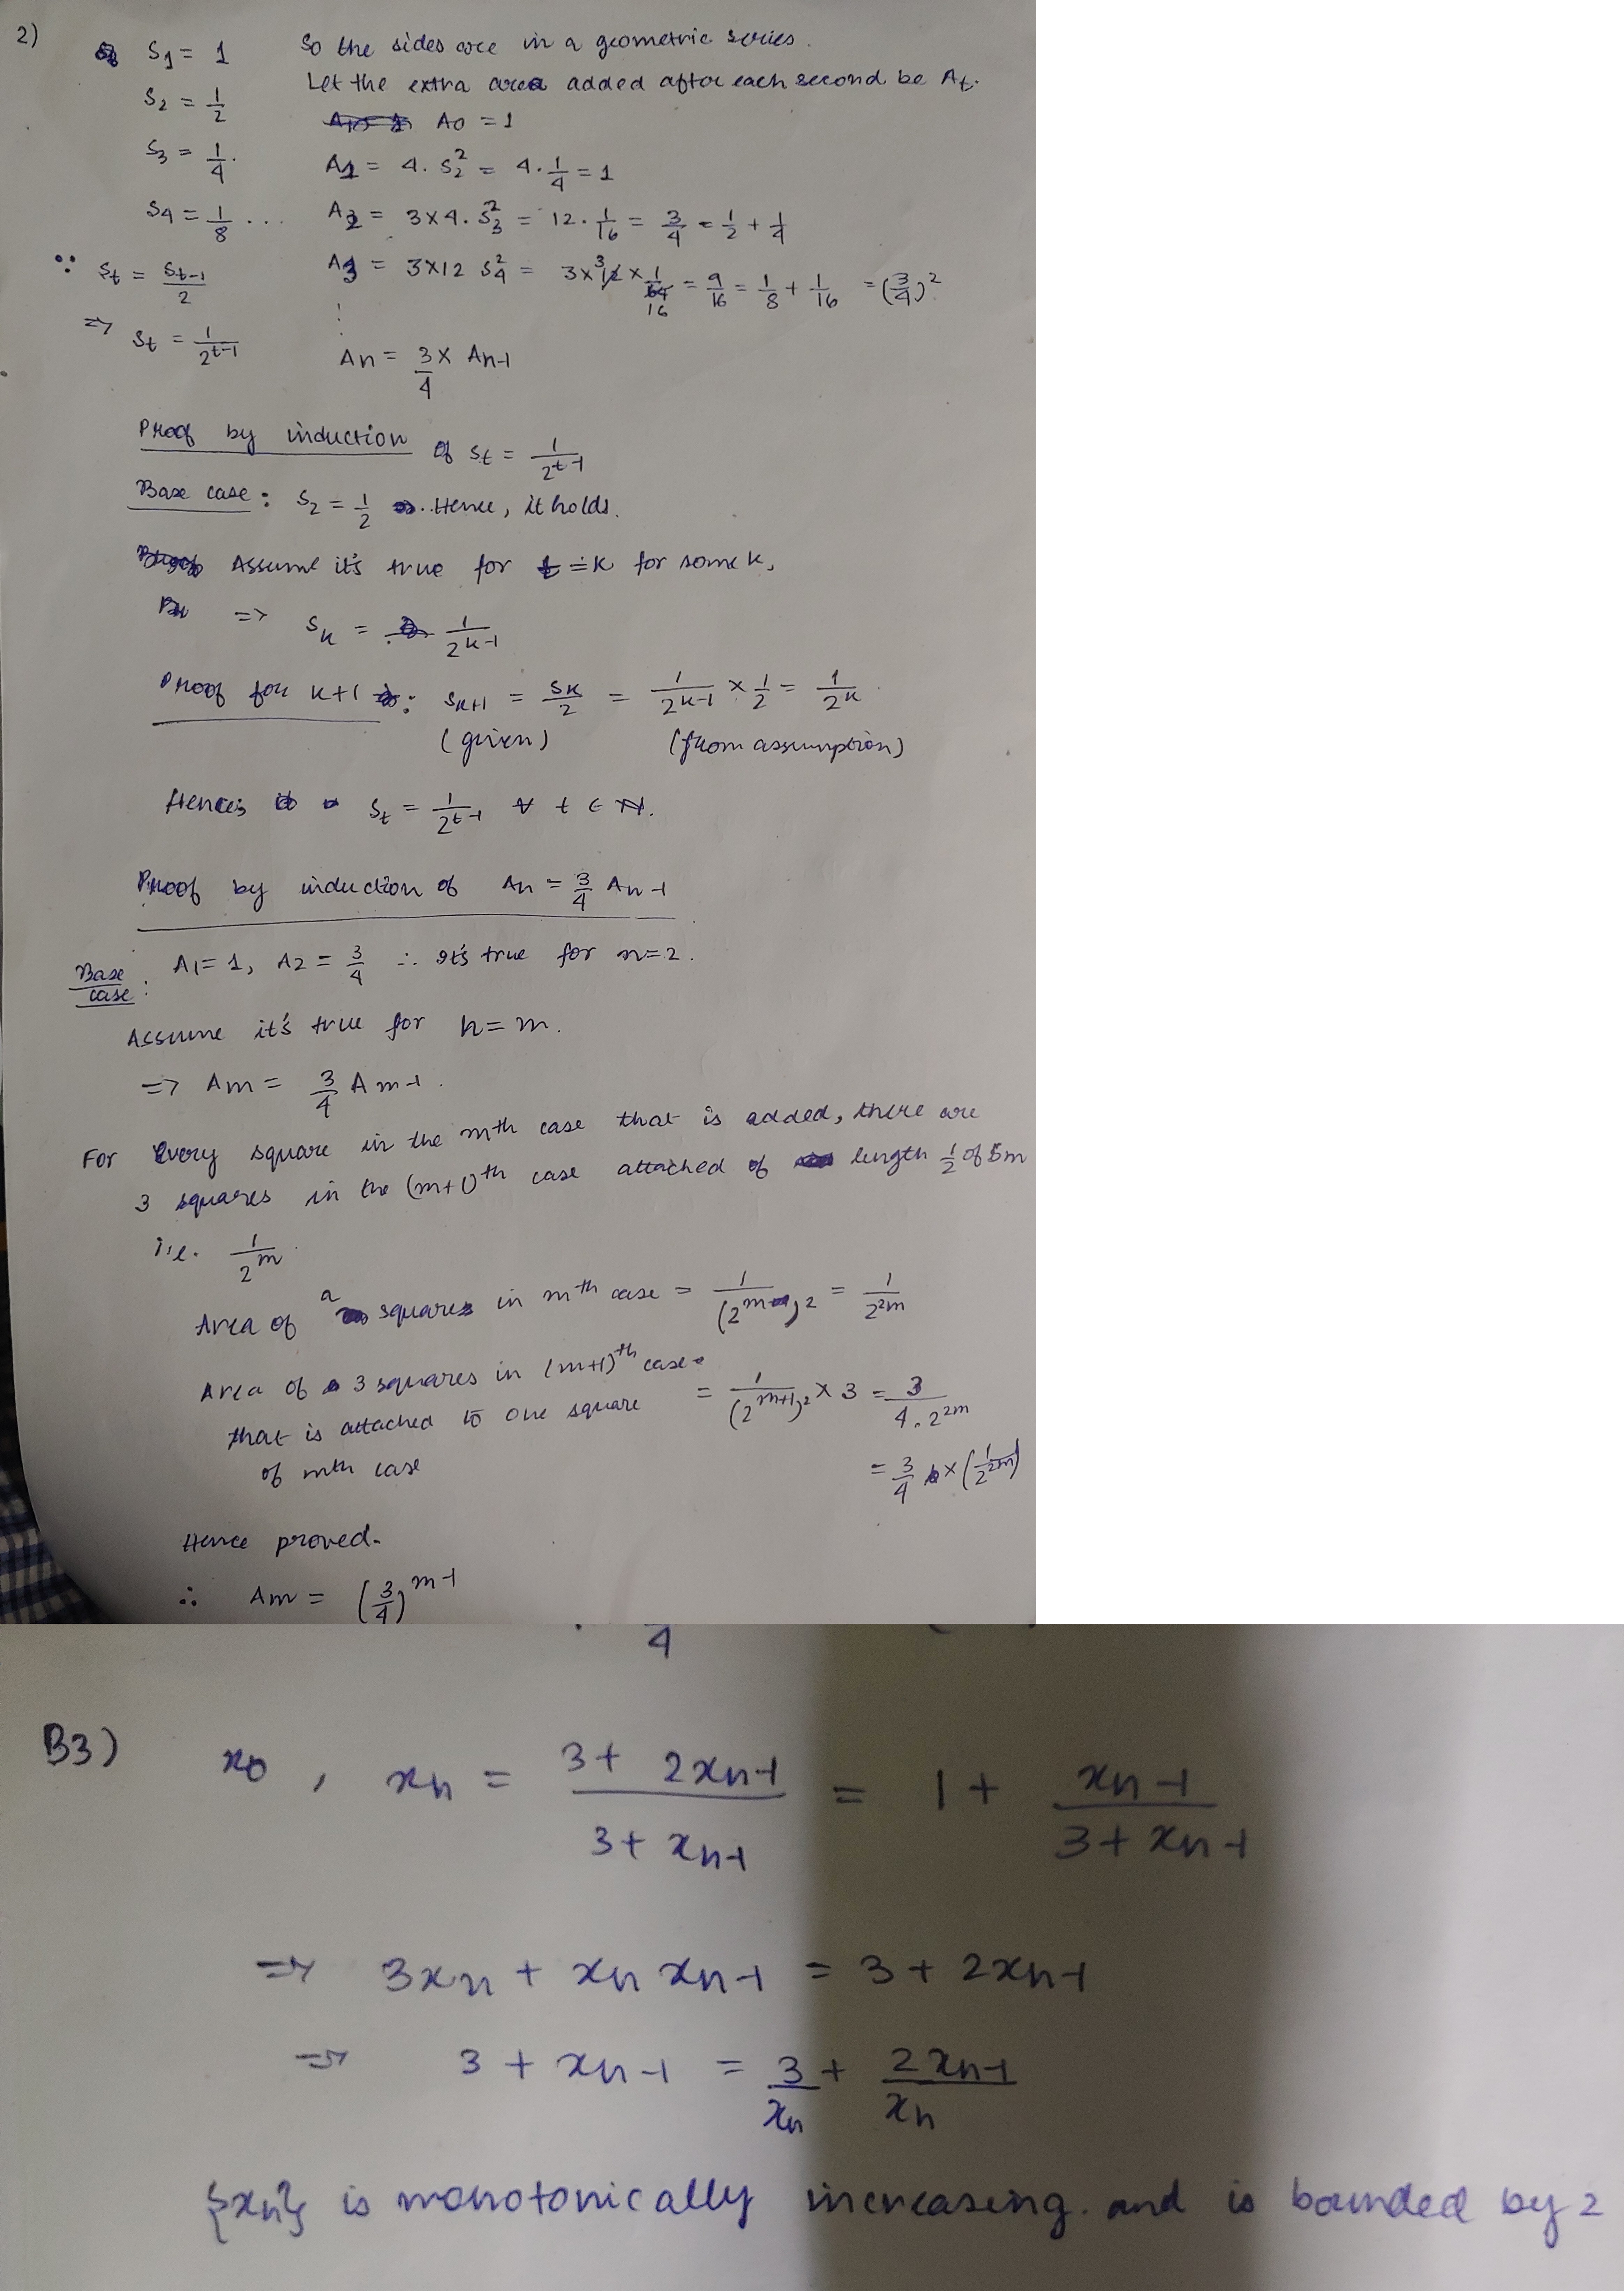 2)
S1 = 1 So the sides are in a geometric series.
Let the extra area added after each second be At.
S2 = 1/2 A0 = 1
S3 = 1/4. A1 = 4. S2^2 = 4. 1/4 = 1
S4 = 1/8 ... A2 = 3x4. S3^2 = 12. 1/16 = 3/4 = 1/2 + 1/4
∵ St = St-1/2 A3 = 3x12 S4^2 = 3x 3 12 x 1/64 16 = 9/16 = 1/8 + 1/16 = (3/4)^2
⋮
=> St = 1/2^t-1 An = 3/4 x An-1
Proof by induction of St = 1/2^t-1
Base case: S2 = 1/2 . Hence, it holds.
Assume it's true for t = k for some k,
=> Sk = 1/2^k-1
Proof for k+1 : Sk+1 = Sk/2 = 1/2^k-1 x 1/2 = 1/2^k
(given) (from assumption)
Hence St = 1/2^t-1 ∀ t ∈ N.
Proof by induction of An = 3/4 An-1
Base case: A1 = 1, A2 = 3/4 ∴ It's true for n=2.
Assume it's true for n = m.
=> Am = 3/4 Am-1.
For every square in the mth case that is added, there are
3 squares in the (m+1)th case attached of length 1/2 of Sm
i.e. 1/2^m.
Area of a square in mth case = 1/(2^m)^2 = 1/2^2m
Area of 3 squares in (m+1)th case = 1/(2^m+1)^2 x 3 = 3/4.2^2m
that is attached to one square
of mth case = 3/4 x (1/2^2m)
Hence proved.
∴ Am = (3/4)^m-1
4
B3) x0 , xn = 3 + 2xn-1/3 + xn-1 = 1 + xn-1/3 + xn-1
=> 3xn + xn xn-1 = 3 + 2xn-1
=> 3 + xn-1 = 3/xn + 2xn-1/xn
{xn} is monotonically increasing. and is bounded by 2